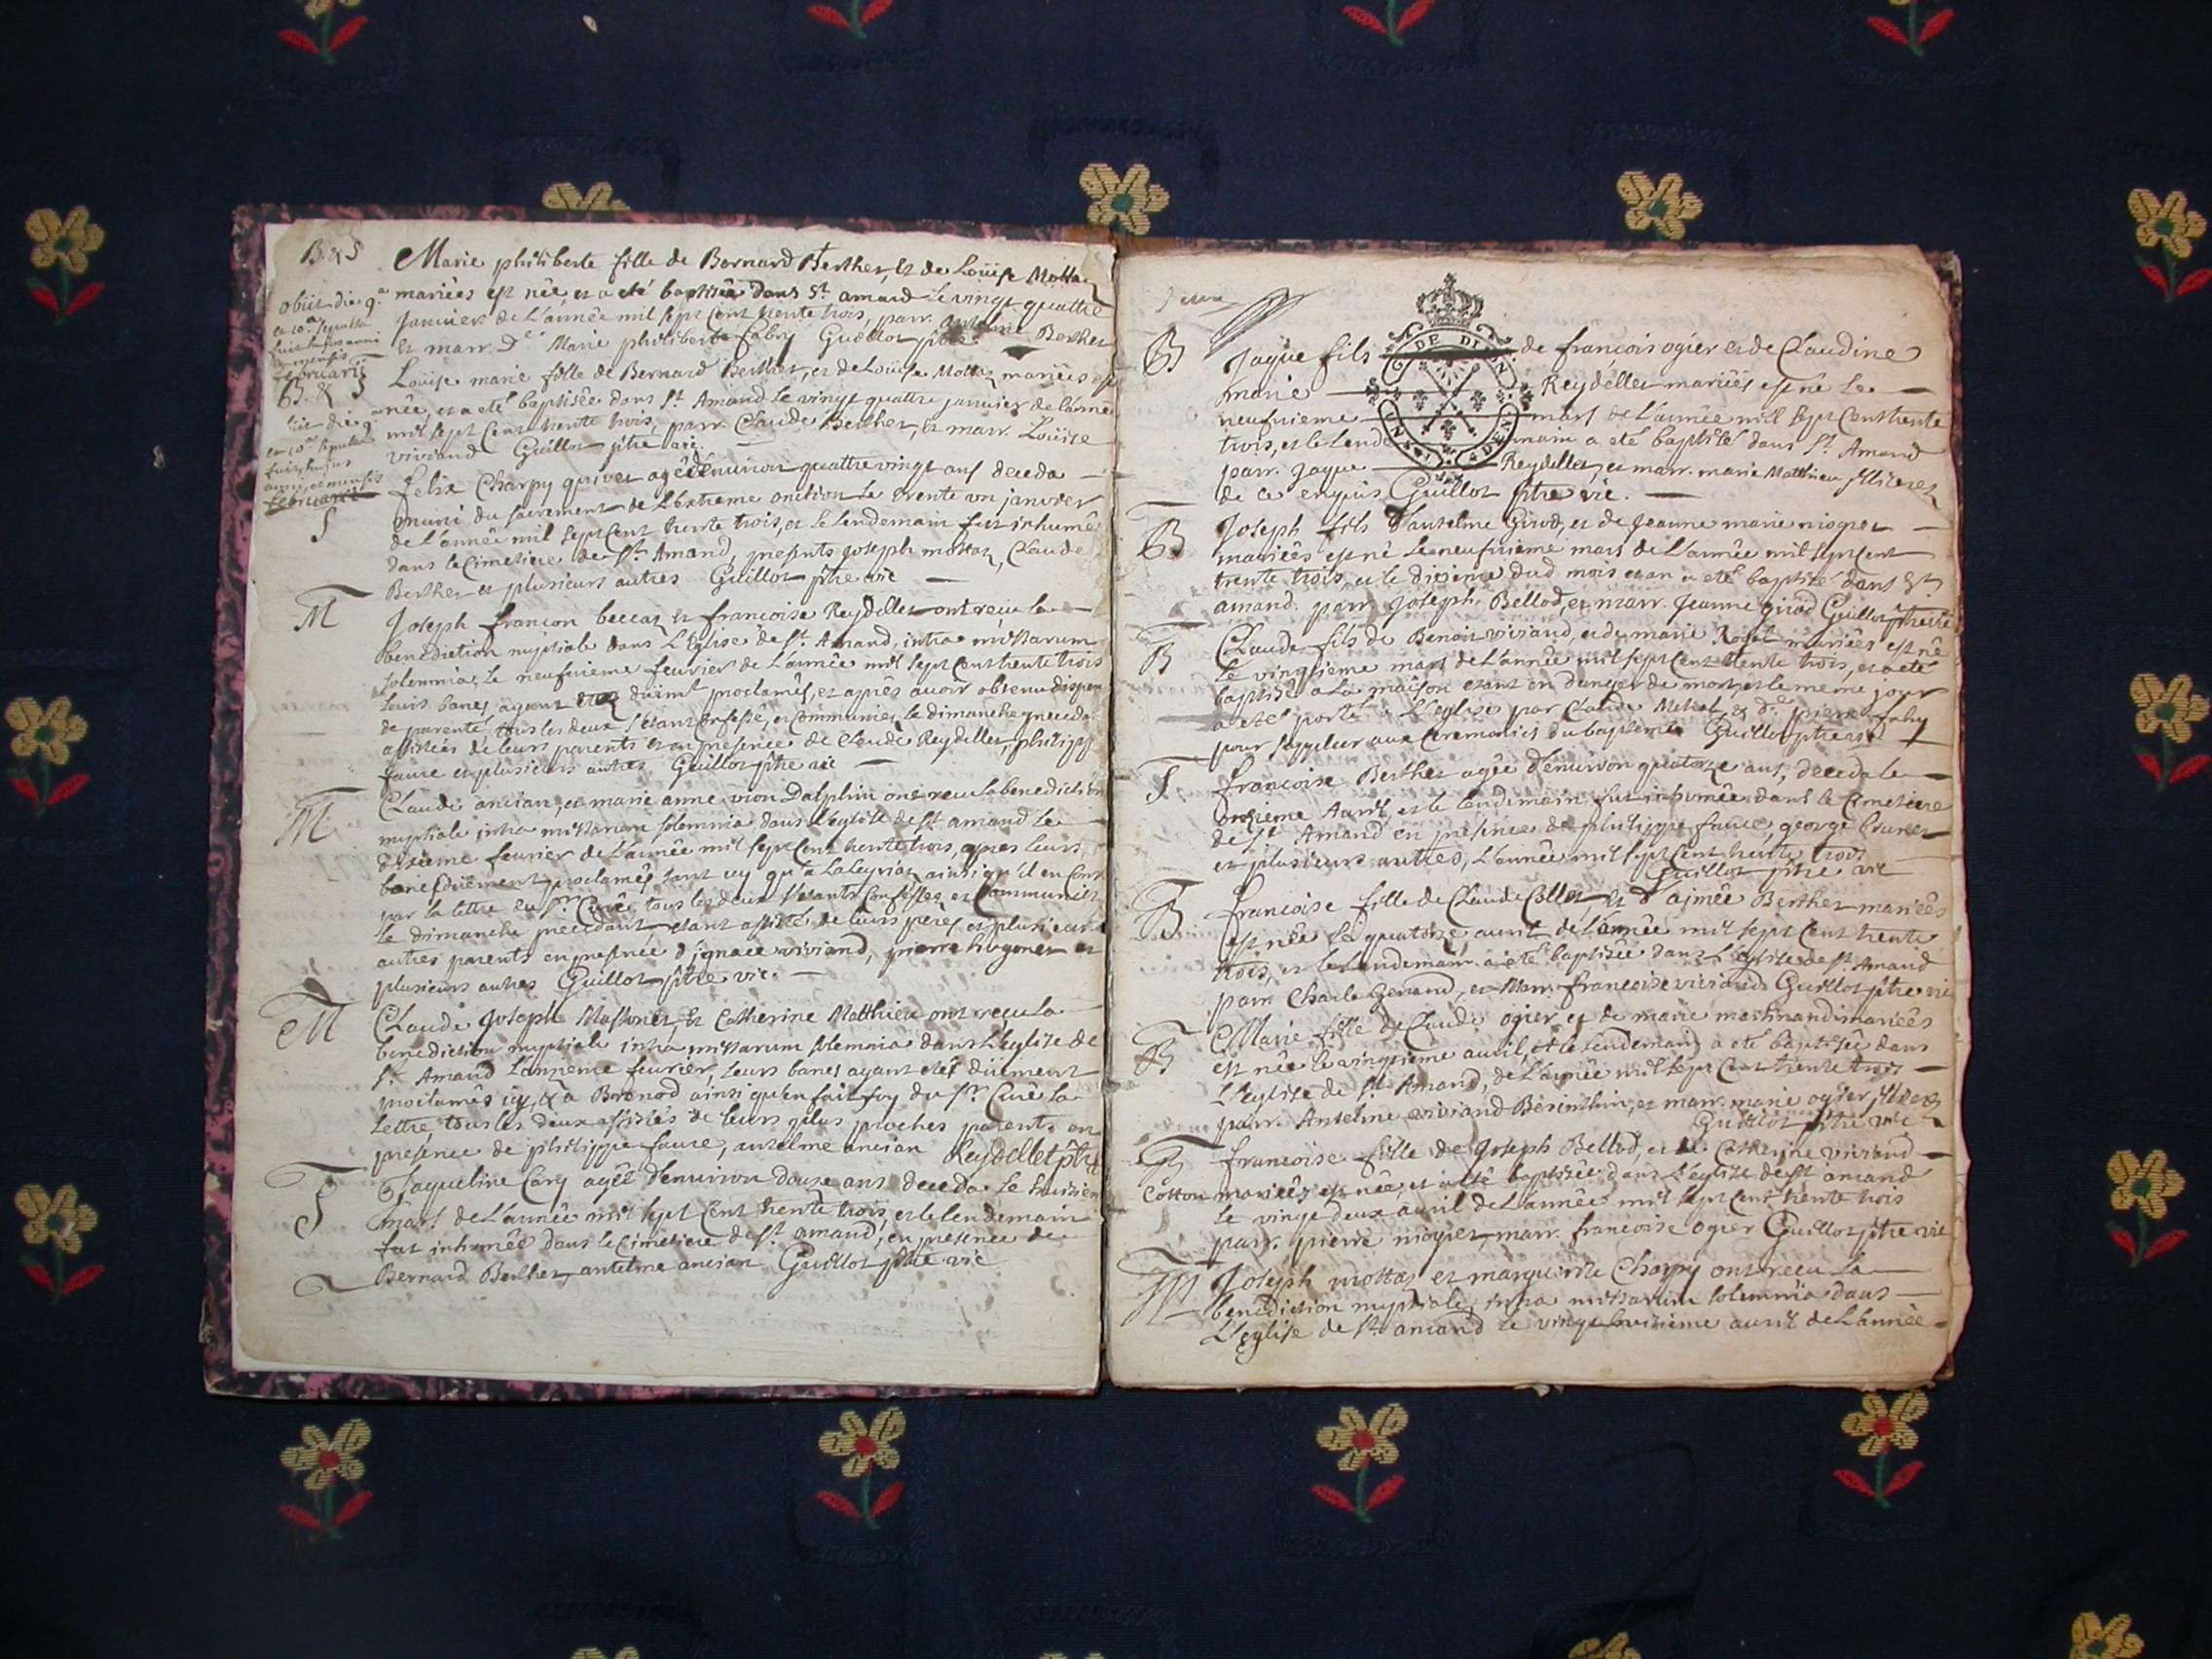 B. & S
Marie philiberte fille de Bernard Berthet, et de Loüise Mottaz
mariées est née, et a eté baptisée dans St. amand le vingt quattre
obiit die 9.a
Janvier de l'année mil sept cent trente trois, parr. antelme Berthet
et marr. De. Marie philiberte fabry Guillot ptre
februarii
B. & S
Loüise marie fille de Bernard Berthet, et de Loüise Mottaz mariées est
née, et a eté baptisée dans St. Amand le vingt quattre janvier de l'anné
mil sept cent trente trois, parr. Claude Berthet, et marr. Loüise
viviand Guillot ptre vic.
februarii
S
felix Charpy quivet agé d'environ quattre vingt ans deceda
muni du sacrement de L'extreme onction le trente un janvier
de L'année mil sept cent trente trois, et le lendemain fut inhumé
dans le cimetiere de St. Amand, presents joseph mottaz, Claude
Berthet et plusieurs autres Guillot ptre vic
M
Joseph françon beccaz et francoise Reydellet ont reçu la
benediction nuptiale dans L'Eglise de St. Amand, intra missarum
solemnia, le neufvieme fevrier de L'année mil sept cent trente trois
leurs bancs ayant etez düemt proclamés, et après avoir obtenu dispen
de parenté, tous les deux s'etant confessé, et communiez le dimanche preceda
assistées de leurs parents et en presence de Claude Reydellet, philipp
faure et plusieurs autres Guillot ptre vic
M
Claude ancian, et marie anne vion Dalphin ont recu la benediction
nuptiale intra missarum solemnia dans L'eglise de St. amand le
dixieme fevrier de L'année mil sept cent trente trois, apres leurs
bancs düement proclamés tant icy qu'a Laleyriaz ainsi qu'il en
par la lettre du Sr. Curé, tous les deux s'etants confessez et communiez
le dimanche precedant etant assistés de leurs peres et plusieurs
autres parents en presnce d'ignace viviand, pierre hugonet et
plusieurs autres Guillot ptre vic.
M
Claude Joseph Massonet, et Catherine Matthieu ont reçu la
benediction nuptiale intra missarum solemnia dans L'eglise de
St. Amand L'onzieme fevrier, leurs bancs ayant etés düement
proclamés icy, & a Brenod ainsi qu'en fait foy du Sr. Curé la
lettre, tous les deux assistés de leurs plus proches parents en
presence de philippe faure, antelme ancian Reydellet ptre
S
Jaqueline Cary agée d'environ douze ans deceda le huitiem
mars de L'année mil sept cent trente trois, et le lendemain
fut inhumée dans le cimetiere de St. amand, en presence de
Bernard Berthet, antelme ancian Guillot ptre vic
B
Jaque fils de francois ogier et de Claudine
marie Reydellet mariées est né le
neufvieme mars de L'année mil sept cent trente
trois, et le lendemain a eté baptisé dans St. Amand
parr. Jaque Reydellet, et marr. marie Matthieu
de ce enquis Guillot ptre vic.
B
Joseph fils d'antelme Girod, et de Jeanne marie niogret
mariées est né le neufvieme mars de L'année mil sept cent
trente trois, et le dixieme dud mois et an a eté baptisé dans St.
amand. parr. Joseph Bellod, et marr. Jeanne girod Guillot ptre vic
B
Claude fils de Benoit viviand, et de marie Roget mariées est né
le vingtieme mars de L'année mil sept cent trente trois, et a eté
baptisé a La maison etant en danger de mort, et le meme jour
a eté porté a L'eglise par Claude & De. pierre faby
pour suppleer aux ceremonies du baptême Guillot ptre vic
S
francoise Berthet agée d'environ quatorze ans, deceda le
onzieme Avril, et le lendemain fut inhumée dans le Cimetiere
de St. Amand en presence de philippe faure, george
et plusieurs autres, L'année mil sept cent trente trois
Guillot ptre vic
B
francoise fille de Claude Collet, et d'aimée Berthet mariées
est née le quatorze avril de L'année mil sept cent trente
trois, et le lendemain a eté baptisée dans L'eglise de St. Amand
parr. Charle Genand, et Marr. francoise viviand Guillot ptre vic
B
Marie fille de Claude ogier et de marie martinand mariées
est née le vingtieme avril, et le lendemain a eté baptisée dans
L'Eglise de St. Amand, de L'année mil sept cent trente trois
parr. Antelme viviand Besinthin, et marr. marie ogier,
Guillot ptre vic
B
francoise fille de Joseph Bellod, et de Catherine viviand
Cotton mariées est née, et a eté baptisée dans L'eglise de St. amand
le vingt deux avril de L'année mil sept cent trente trois
parr. pierre niogret, marr. francoise ogier Guillot ptre vic
M
Joseph mottaz et marguerite Charpy ont recu la
benediction nuptiale, intra missarum solemnia dans
L'Eglise de St. amand le vingt huitieme avril de L'année